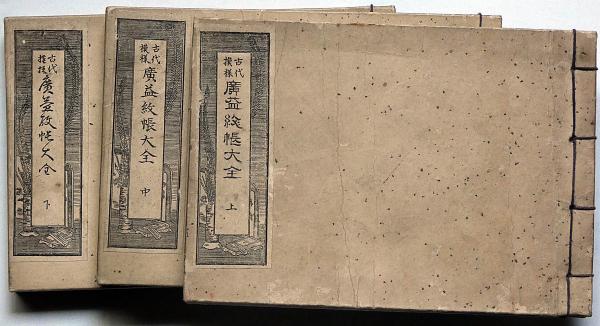 古代
模様
廣益紋帳大全
上
古代
模様
廣益紋帳大全
中
古代
模様
廣益紋帳大全
下